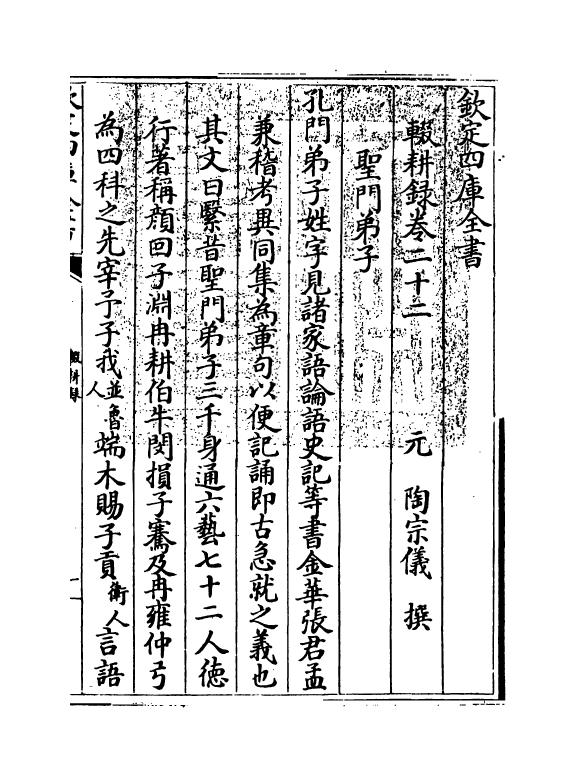 欽定四庫全書
輟耕録卷二十二　元　陶宗儀　撰
聖門弟子
孔門弟子姓字見諸家語論語史記等書金華張君孟
兼稽考異同集為章句以便記誦即古急就之義也
其文曰繫昔聖門弟子三千身通六藝七十二人徳
行著稱顔回子淵冉耕伯牛閔損子騫及冉雍仲弓
為四科之先宰予子我並魯人端木賜子貢衛人言語
欽定四庫全書
輟耕録
一